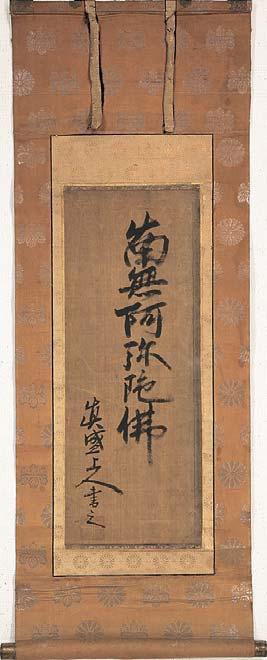 南無阿弥陀佛
真盛上人書之